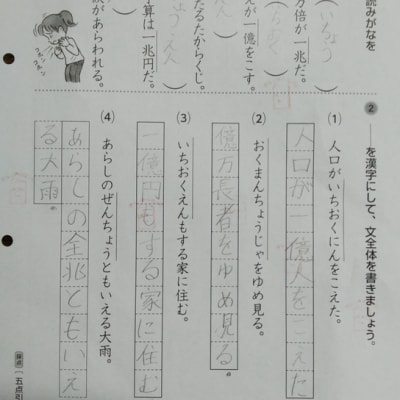 読みがなを
万倍が一兆だ。
(いっちょう)
が一億をこす。
たるたからくじ。
算は一兆円だ。
候があらわれる。
コンコン
② ――を漢字にして、文全体を書きましょう。
(1) 人口がいちおくにんをこえた。
人口が一億人をこえた
(2) おくまんちょうじゃをゆめ見る。
億万長者をゆめ見る。
(3) いちおくえんもする家に住む。
一億円もする家に住む
(4) あらしのぜんちょうともいえる大雨。
あらしの全兆ともいえ
る大雨。
採点
五点引